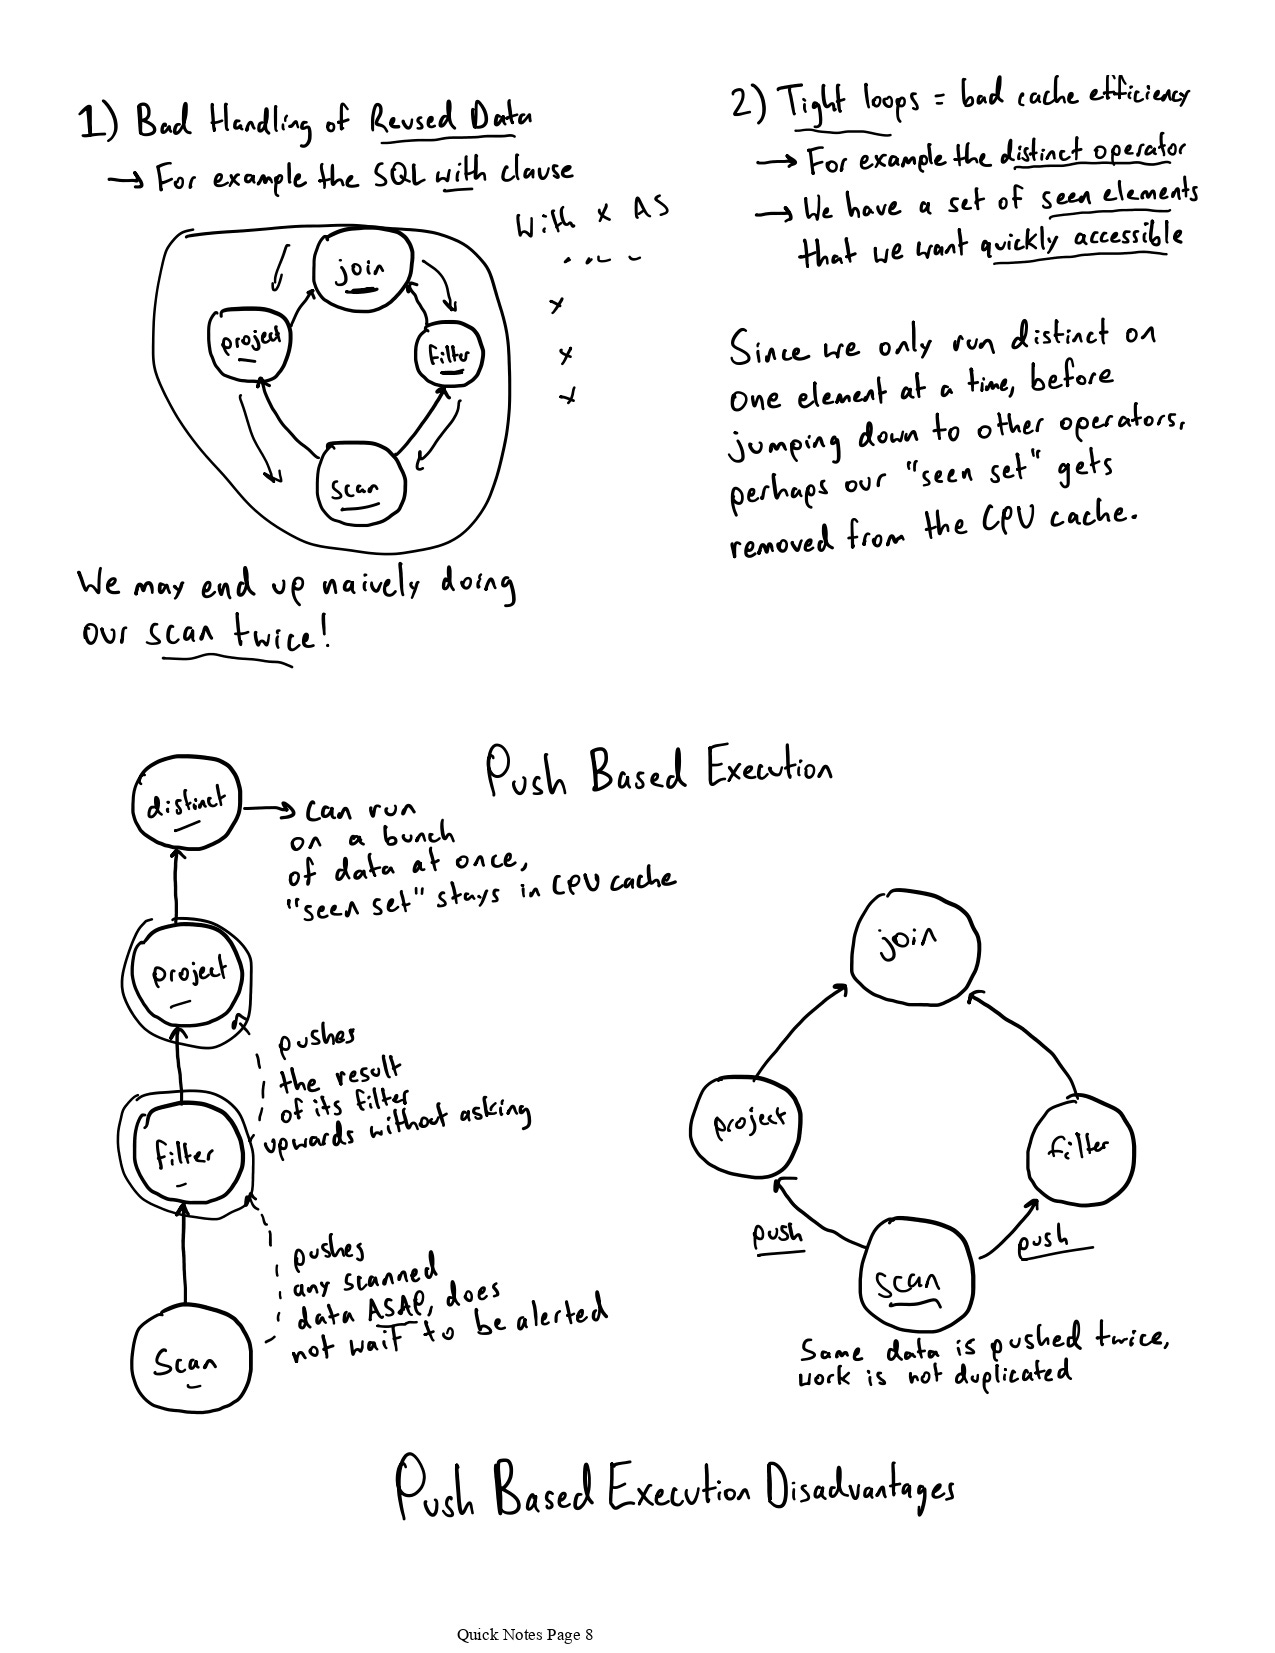 1) Bad Handling of Reused Data
→ For example the SQL with clause
With x AS
....
x
x
x
join
project
filter
scan
We may end up naively doing
our scan twice!
2) Tight loops = bad cache efficiency
→ For example the distinct operator
→ We have a set of seen elements
that we want quickly accessible
Since we only run distinct on
one element at a time, before
jumping down to other operators,
perhaps our "seen set" gets
removed from the CPU cache.
Push Based Execution
distinct
→ Can run
on a bunch
of data at once,
"seen set" stays in CPU cache
project
pushes
the result
of its filter
upwards without asking
filter
pushes
any scanned
data ASAP, does
not wait to be alerted
Scan
join
project
filter
push
push
scan
Same data is pushed twice,
work is not duplicated
Push Based Execution Disadvantages
Quick Notes Page 8